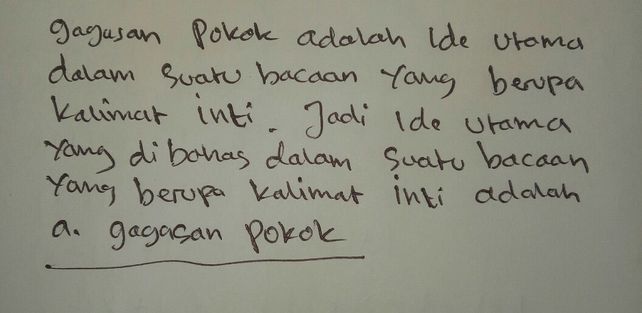 gagasan Pokok adalah Ide utama
dalam suatu bacaan Yang berupa
Kalimat inti. Jadi Ide utama
Yang dibahas dalam suatu bacaan
Yang berupa Kalimat inti adalah
a. gagasan Pokok